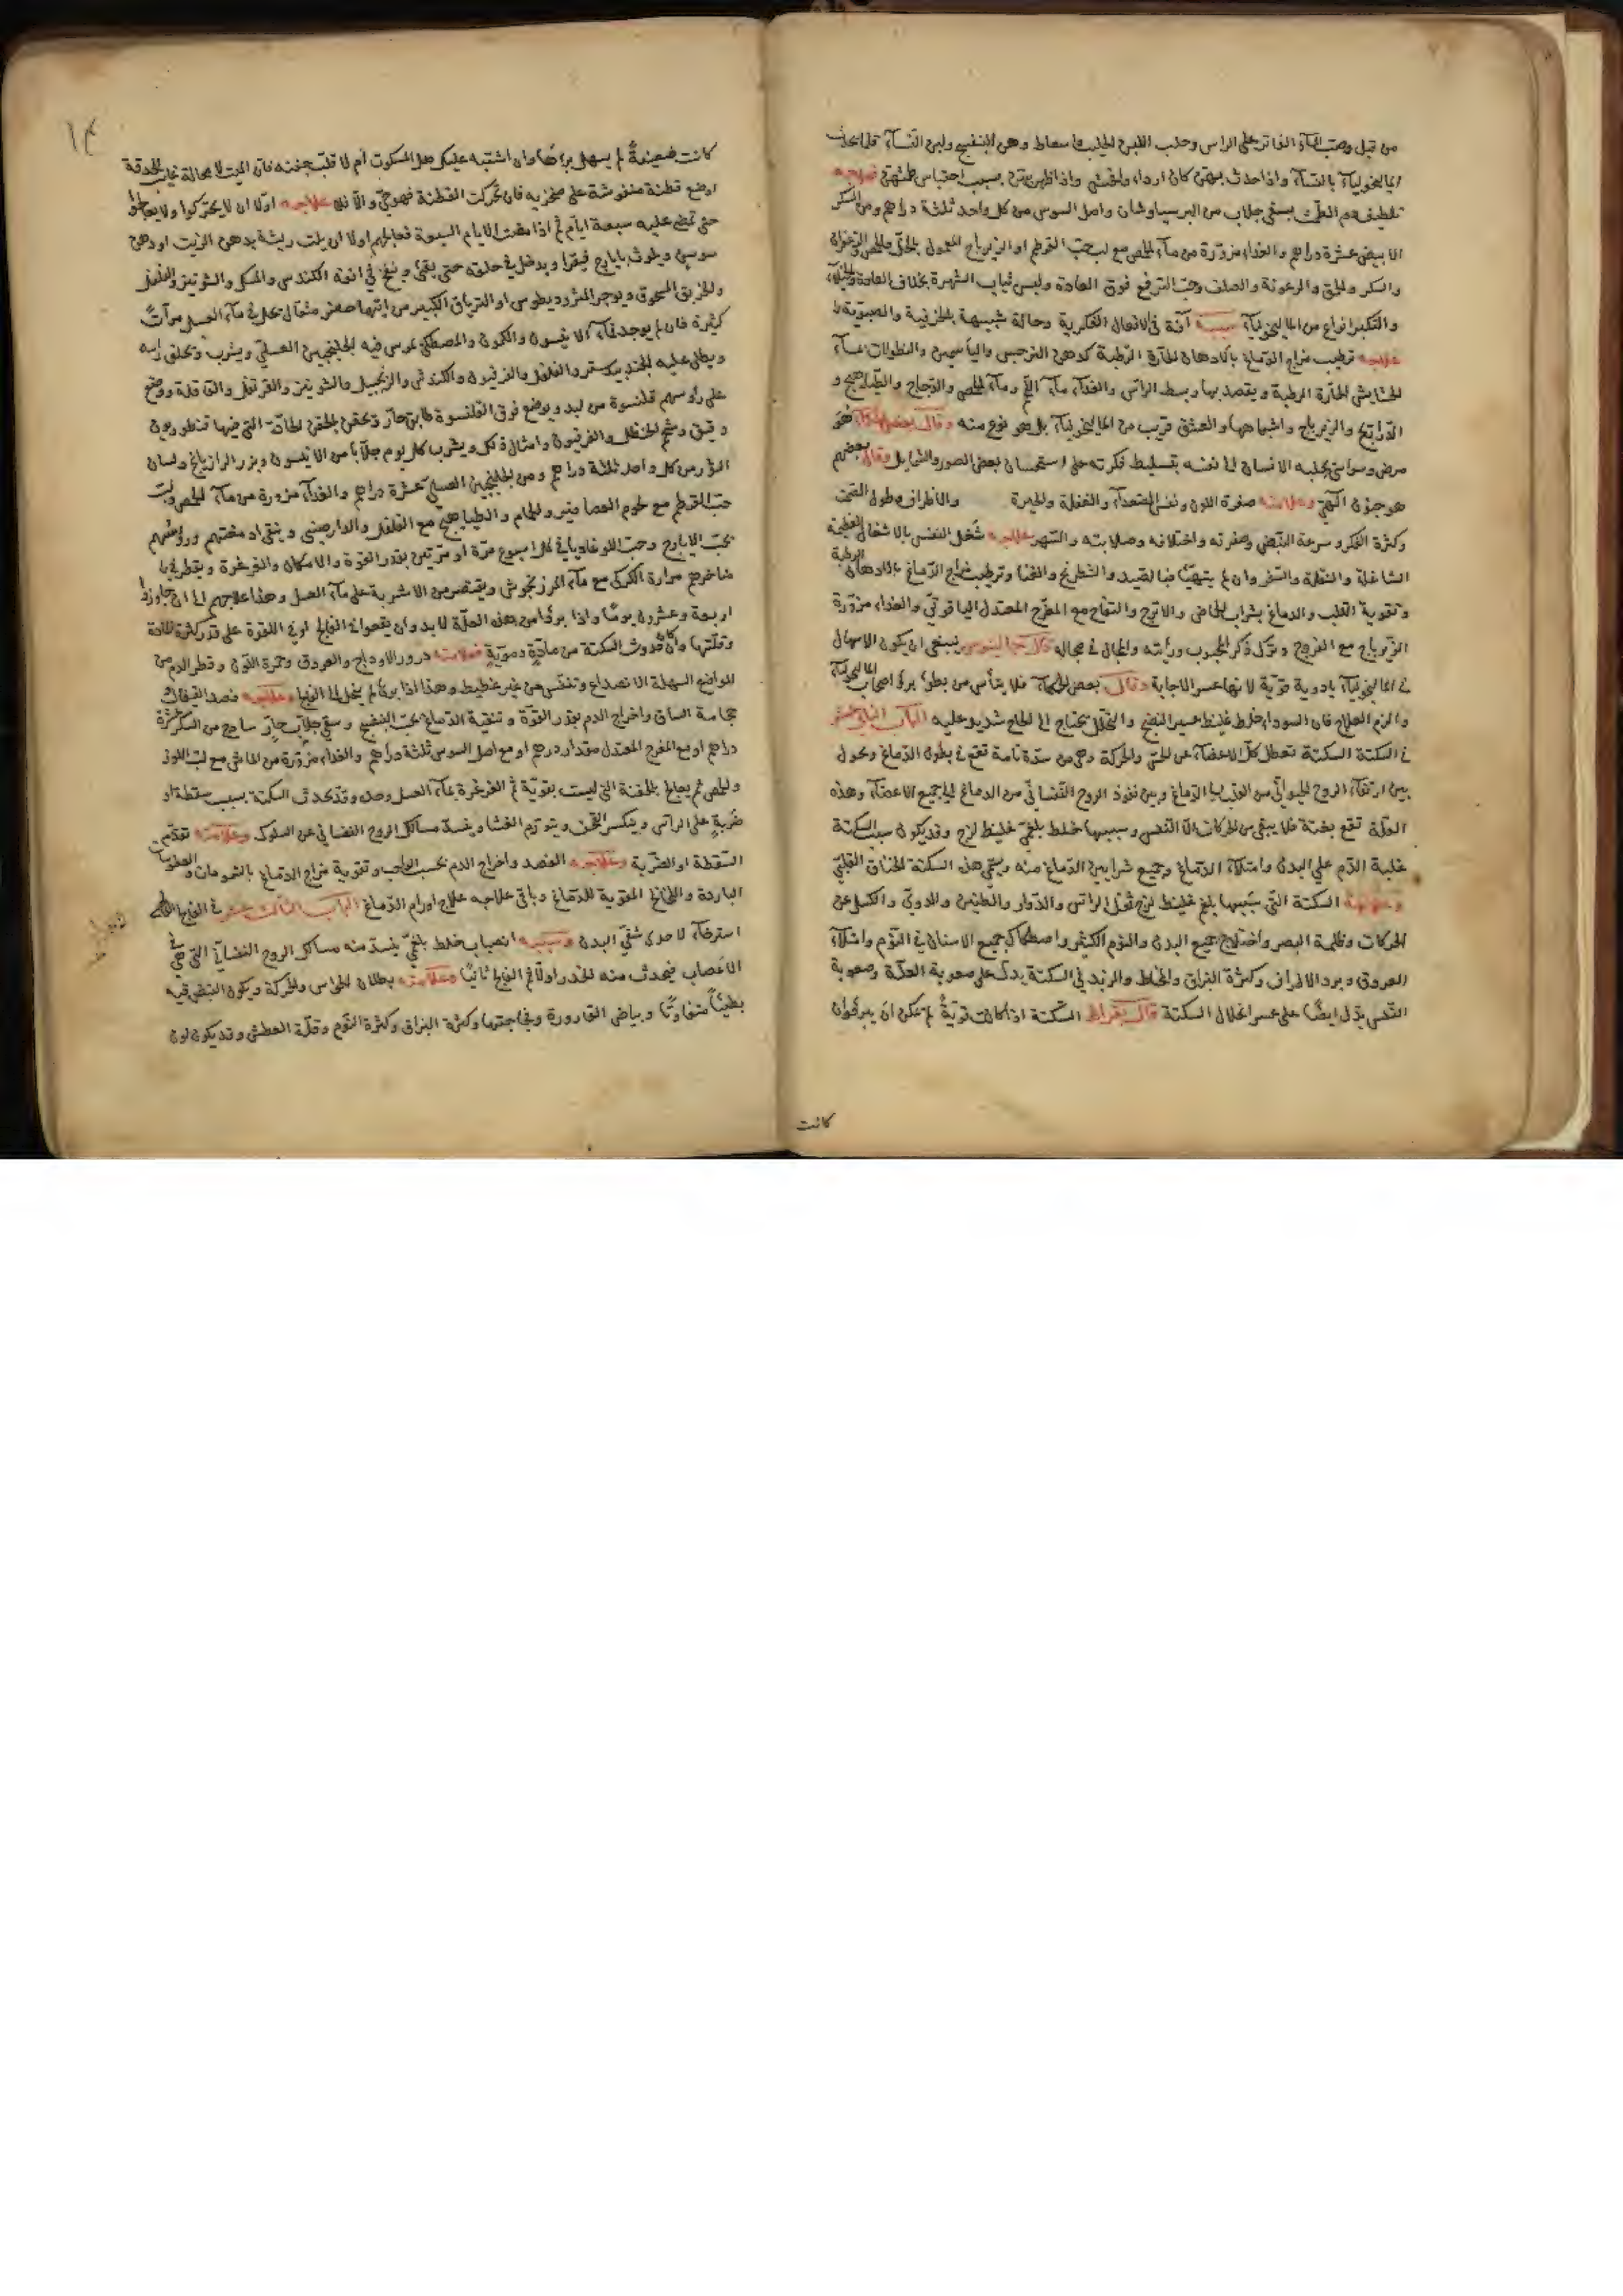 من قبل وصب الماء الفاتر على الراس وحلب اللبن الحليب واسعاط دهن البنفسج ولبن النساء قلما يحدث
الماليخوليا بالنساء واذا حدث بهن كان اردا وافحش واذا ظهر بهن بسبب احتباس طمثهن فعلاجه
تلطيفهم الطمث يسقى جلاب من البرسياوشان واصل السوس من كل واحد ثلثة دراهم ومن السكر
الابيض عشرة دراهم والغذاء مزورة من ماء الحمص مع لب حب القرطم او الزيرباج المعمول بالخل والحمص والزعفران
والسكر والحمق والرعونة والصلف وحب الترفع فوق العادة ولبس ثياب الشهرة بخلاف العادة والخيلاء
والتكبر انواع من الماليخوليا سببه آفة في الافعال الفكرية وحالة شبيهة بالخرفية والصبوية
علاجه ترطيب مزاج الدماغ بالادهان الحارة الرطبة كدهن النرجس والياسمين والنطولات بماء
الحشايش الحارة الرطبة ويقصد بها وسط الراس والغذاء ماء اللحم وماء الحمص والدجاج والطياهيج و
الدراريج والزيرباج واشباهها والعشق قريب من الماليخوليا بل هو نوع منه وقال بعض الحكماء هو
مرض وسواسي يجلبه الانسان الى نفسه بتسليط فكرته على استحسان بعض الصور والشمايل وقال بعضهم
هو جنون الهي وعلامته صفرة اللون ونفس الصعداء والغفلة والحيرة والاطراف وطول الصمت
وكثرة الفكر وسرعة النبض وصغرته واختلافه وصلابته والسهر علاجه شغل النفس بالاشغال العظيمة
الشاغلة والنقلة والسفر وان لم يتهيا فبالصيد والشطرنج والغنا وترطيب مزاج الدماغ بالادهان الرطبة
وتقوية القلب والدماغ بشراب الحماض والاترج والتفاح مع المفرح المعتدل الياقوتي والغذاء مزورة
الزيرباج مع الفروج وترك ذكر المحبوب ورايته والجمال في مجاله قال جالينوس ينبغي ان يكون الاسهال
في الماليخوليا بادوية قوية لانها عسر الاجابة وقال بعض الحكماء فلا يتأس من بطؤ برؤ اصحاب الماليخوليا
والزم العلاج فان السوداء خلط غليظ عسير النضج والتحلل يحتاج الى الحاح شديد عليه الباب الثاني عشر
في السكتة السكتة تعطل كل الاعضاء عن الحس والحركة وهي من سدة تامة تقع في بطون الدماغ وتحول
بين ارتقاء الروح الحيواني من القلب الى الدماغ وبين نفوذ الروح النفساني من الدماغ الى جميع الاعضاء وهذه
العلة تقع بغتة فلا يبقى من الحركات الا التنفس وسببها خلط بلغمي غليظ لزج وقد يكون سبب السكتة
غلبة الدم على البدن وامتلاء الدماغ وجميع شرايين الدماغ منه ويسمى هذه السكتة الخناق القلبي
وعلامة السكتة التي سببها بلغم غليظ لزج ثقل الراس والدوار والطنين والدوي والكسل عن
الحركات وظلمة البصر واختلاج جميع البدن والنوم الكثير واصطكاك جميع الاسنان في النوم وامتلاء
العروق وبرد الاطراف وكثرة البزاق والمخاط والزبد في السكتة يدل على صعوبة العلة وصعوبة
التنفس يدل ايضا على عسر انحلال السكتة قال بقراط السكتة اذا كانت قوية لم يمكن ان يبرأ وان
كانت
١٣
كانت ضعيفة لم يسهل برؤها وان اشتبه عليك هل المسكوت ام لا قلب جفنه فان الميت لا محالة غايب الحدقة
اوضع قطنة منفوشة على منخريه فان تحركت القطنة فهو حي والا فلا علاجه اولا ان لا يحركوا ولا يعالجوا
حتى تمضي عليه سبعة ايام ثم اذا مضت الايام السبعة فعالجهم اولا ان يلت ريشة بدهن الزيت او دهن
سوسن ويلوث بايارج فيقرا ويدخل في حلقه حتى يقئ وينفخ في انفه الكندس والمسك والشونيز والفلفل
والخربق المسحوق ويوجر المثروديطوس او الترياق الكبير من ايها حضر مثقال يحل في ماء العسل مرات
كثيرة فان لم يوجد فماء الانيسون والكمون والمصطكي يمرس فيه الجلنجبين العسلي ويشرب ويحلق راسه
ويطلى عليه الجندبيدستر والفلفل والفرفيون والكندش والزنجبيل والشونيز والقرنفل والقاقلة ووضع
على رؤسهم قلنسوة من لبد ويوضع فوق القلنسوة طابق حار ويحقن بالحقن الحادة التي فيها قنطوريون
دقيق وشحم الحنظل والفرفيون وامثال ذلك ويشرب كل يوم جلابا من الانيسون وبزر الرازيانج ولسان
الثور من كل واحد ثلثة دراهم ومن الجلنجبين العسلي عشرة دراهم والغذاء مزورة من ماء الحمص ولب
حب القرطم مع لحوم العصافير والحمام والطياهيج مع الفلفل والدارصيني وينقى ادمغتهم ورؤسهم
بحب الايارج وحب اللوغاديا في كل اسبوع مرة او مرتين بقدر القوة والامكان والغرغرة ويقطر في
مناخرهم مرارة الكركي مع ماء المرزنجوش ويقتصر من الاشربة على ماء العسل وهذا علاجهم الى ان يجاوزوا
اربعة وعشرون يوما واذا برؤا من هذه العلة لا بد وان يقعوا في الفالج او في اللقوة على قدر كثرة المادة
وقلتها وان كان حدوث السكتة من مادة دموية فعلامته درور الاوداج والعروق وحمرة اللون وقطر الدم من
المواضع السهلة الانصداع وتنفس من غير غطيط وهذا اذا برئ لم ينحل الى الفالج وعلاجه فصد القيفال
حجامة الساق واخراج الدم بقدر القوة وتنقية الدماغ بحب البنفسج وسقي جلاب حار ساذج من السكر عشرة
دراهم او مع المفرح المعتدل مقدار درهم او مع اصل السوس ثلثة دراهم والغذاء مزورة من الماش مع لب اللوز
والحمص ثم يعالج بالحقنة التي ليست بقوية ثم الغرغرة بماء العسل وحده وقد تحدث السكتة بسبب سقطة او
ضربة على الراس وينكسر القحف ويتورم الغشا وينسد مسالك الروح النفساني عن السلوك وعلامته تقدم
السقطة او الضربة وعلاجه الفصد واخراج الدم بحسب الواجب وتقوية مزاج الدماغ بالشمومات والسعوطات
الباردة واللخالخ المقوية للدماغ وباقي علاجه علاج اورام الدماغ الباب الثالث عشر في الفالج الفالج
استرخاء لاحدى شقي البدن وسببه انصباب خلط بلغمي ينسد منه مسالك الروح النفساني التي هي في
الاعصاب فيحدث منه الخدر اولا ثم الفالج ثانيا وعلامته بطلان الحواس والحركة ويكون النبض فيه
بطيئا متفاوتا وبياض القارورة وفجاجتها وكثرة البزاق وكثرة النوم وقلة العطش وقد يكون لون